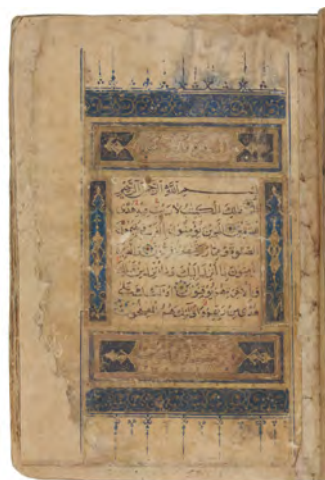 بسم الله الرحمن الرحيم
الم ذلك الكتاب لا ريب فيه هدى
للمتقين الذين يؤمنون بالغيب ويقيمون
الصلوة ومما رزقناهم ينفقون والذين
يؤمنون بما انزل اليك وما انزل من قبلك
وبالاخرة هم يوقنون اولئك على
هدى من ربهم واولئك هم المفلحون